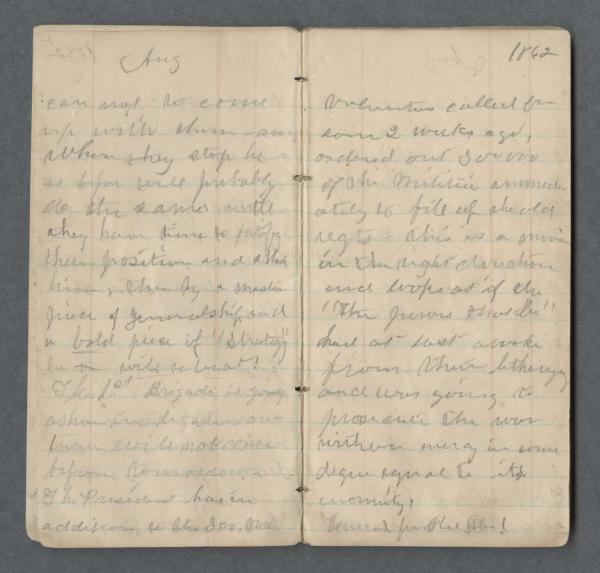 Aug
can not to come
up with them - and
When they stop he
as before will probably
do the same until
they have time to fortify
their position and attack
him, then by a master
piece of generalship and
a bold piece of "Strategy"
he will retreat!
The 1st Brigade is going
ashore in lighters our
turn will not come
before tomorrow
The President has in
addition to the 300,000
1862
Volunteers called for
some 2 weeks ago,
ordered out 300000
of the Militia immedi
ately to fill up the old
regts - this is a move
in the right direction
and looks as if the
"The powers that be"
had at last awoke
from their lethargy
and was going to
prosecute the war
with an energy in some
degree equal to its
enormity,
for Abe!